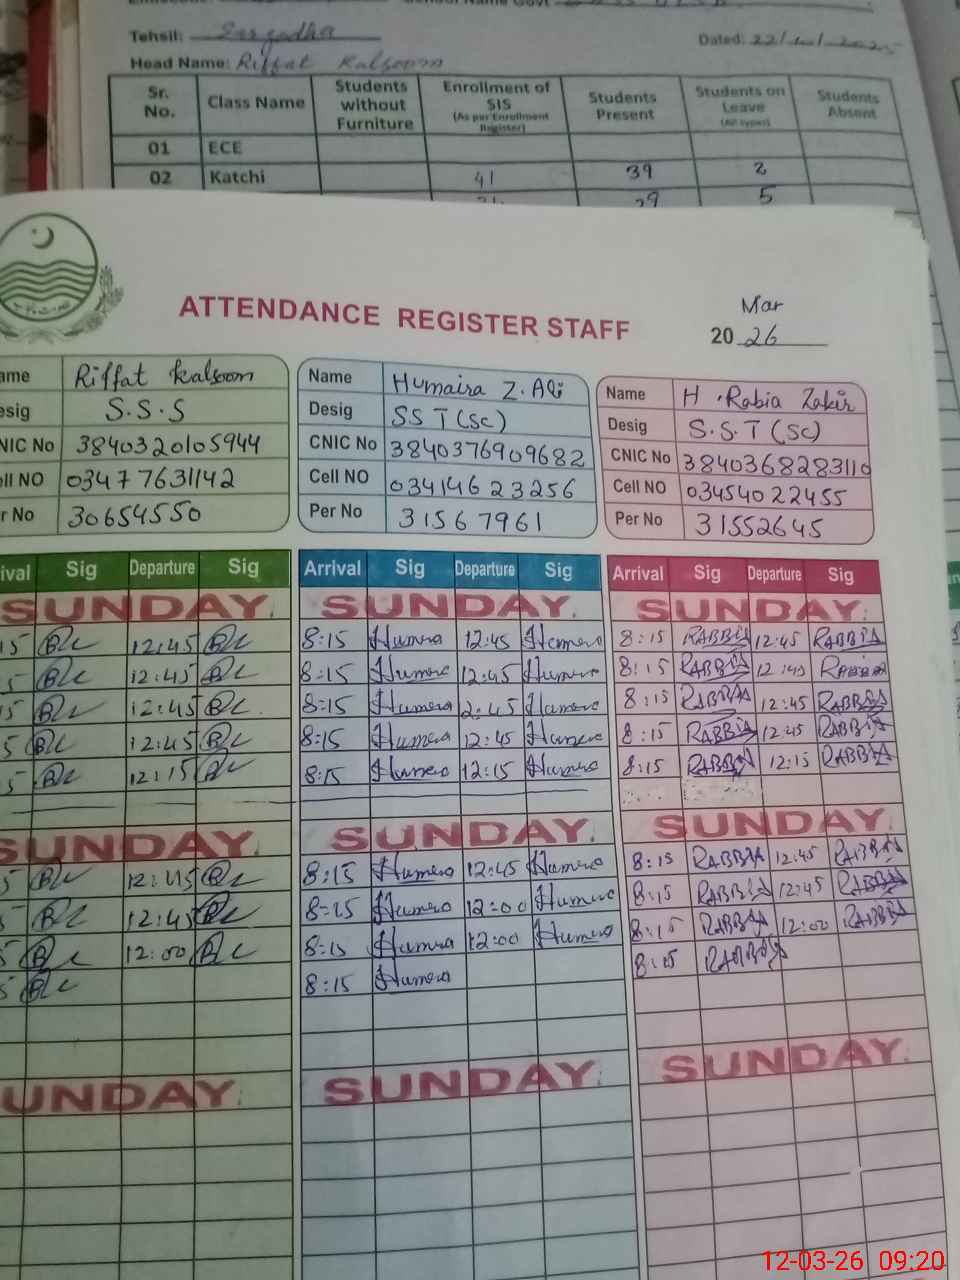 Tehsil: Sargodha Dated: 22/ /2025
Head Name: Riffat Kalsoom
Sr. No. Class Name Students without Furniture Enrollment of SIS (As per Enrollment Register) Students Present Students on Leave (All types) Students Absent
01 ECE
02 Katchi 41 39 2
5
ATTENDANCE REGISTER STAFF Mar 2026
Name Riffat Kalsoom Name Humaira Z. Ali Name H. Rabia Zakir
Desig S.S.S Desig SST (SC) Desig S.S.T (SC)
CNIC No 3840320105944 CNIC No 3840376909682 CNIC No 3840368283110
Cell NO 03477631142 Cell NO 03414623256 Cell NO 03454022455
Per No 30654550 Per No 31567961 Per No 31552645
Arrival Sig Departure Sig Arrival Sig Departure Sig Arrival Sig Departure Sig
SUNDAY SUNDAY SUNDAY
15 12:45 8:15 Humera 12:45 Humera 8:15 RABBIA 12:45 RABBIA
5 12:45 8:15 Humera 12:45 Humera 8:15 RABBIA 12:45 Rabbia
5 12:45 8:15 Humera 12:45 Humera 8:15 RABBIA 12:45 RABBIA
5 12:45 8:15 Humera 12:45 Humera 8:15 RABBIA 12:45 RABBIA
5 12:15 8:15 Humera 12:15 Humera 8:15 RABBIA 12:15 RABBIA
SUNDAY SUNDAY SUNDAY
5 12:45 8:15 Humera 12:45 Humera 8:15 RABBIA 12:45 RABBIA
5 12:45 8:15 Humera 12:00 Humera 8:15 RABBIA 12:45 RABBIA
5 12:00 8:15 Humera 12:00 Humera 8:15 RABBIA 12:00 RABBIA
5 8:15 Humera 8:15 RABBIA
SUNDAY SUNDAY SUNDAY
12-03-26 09:20